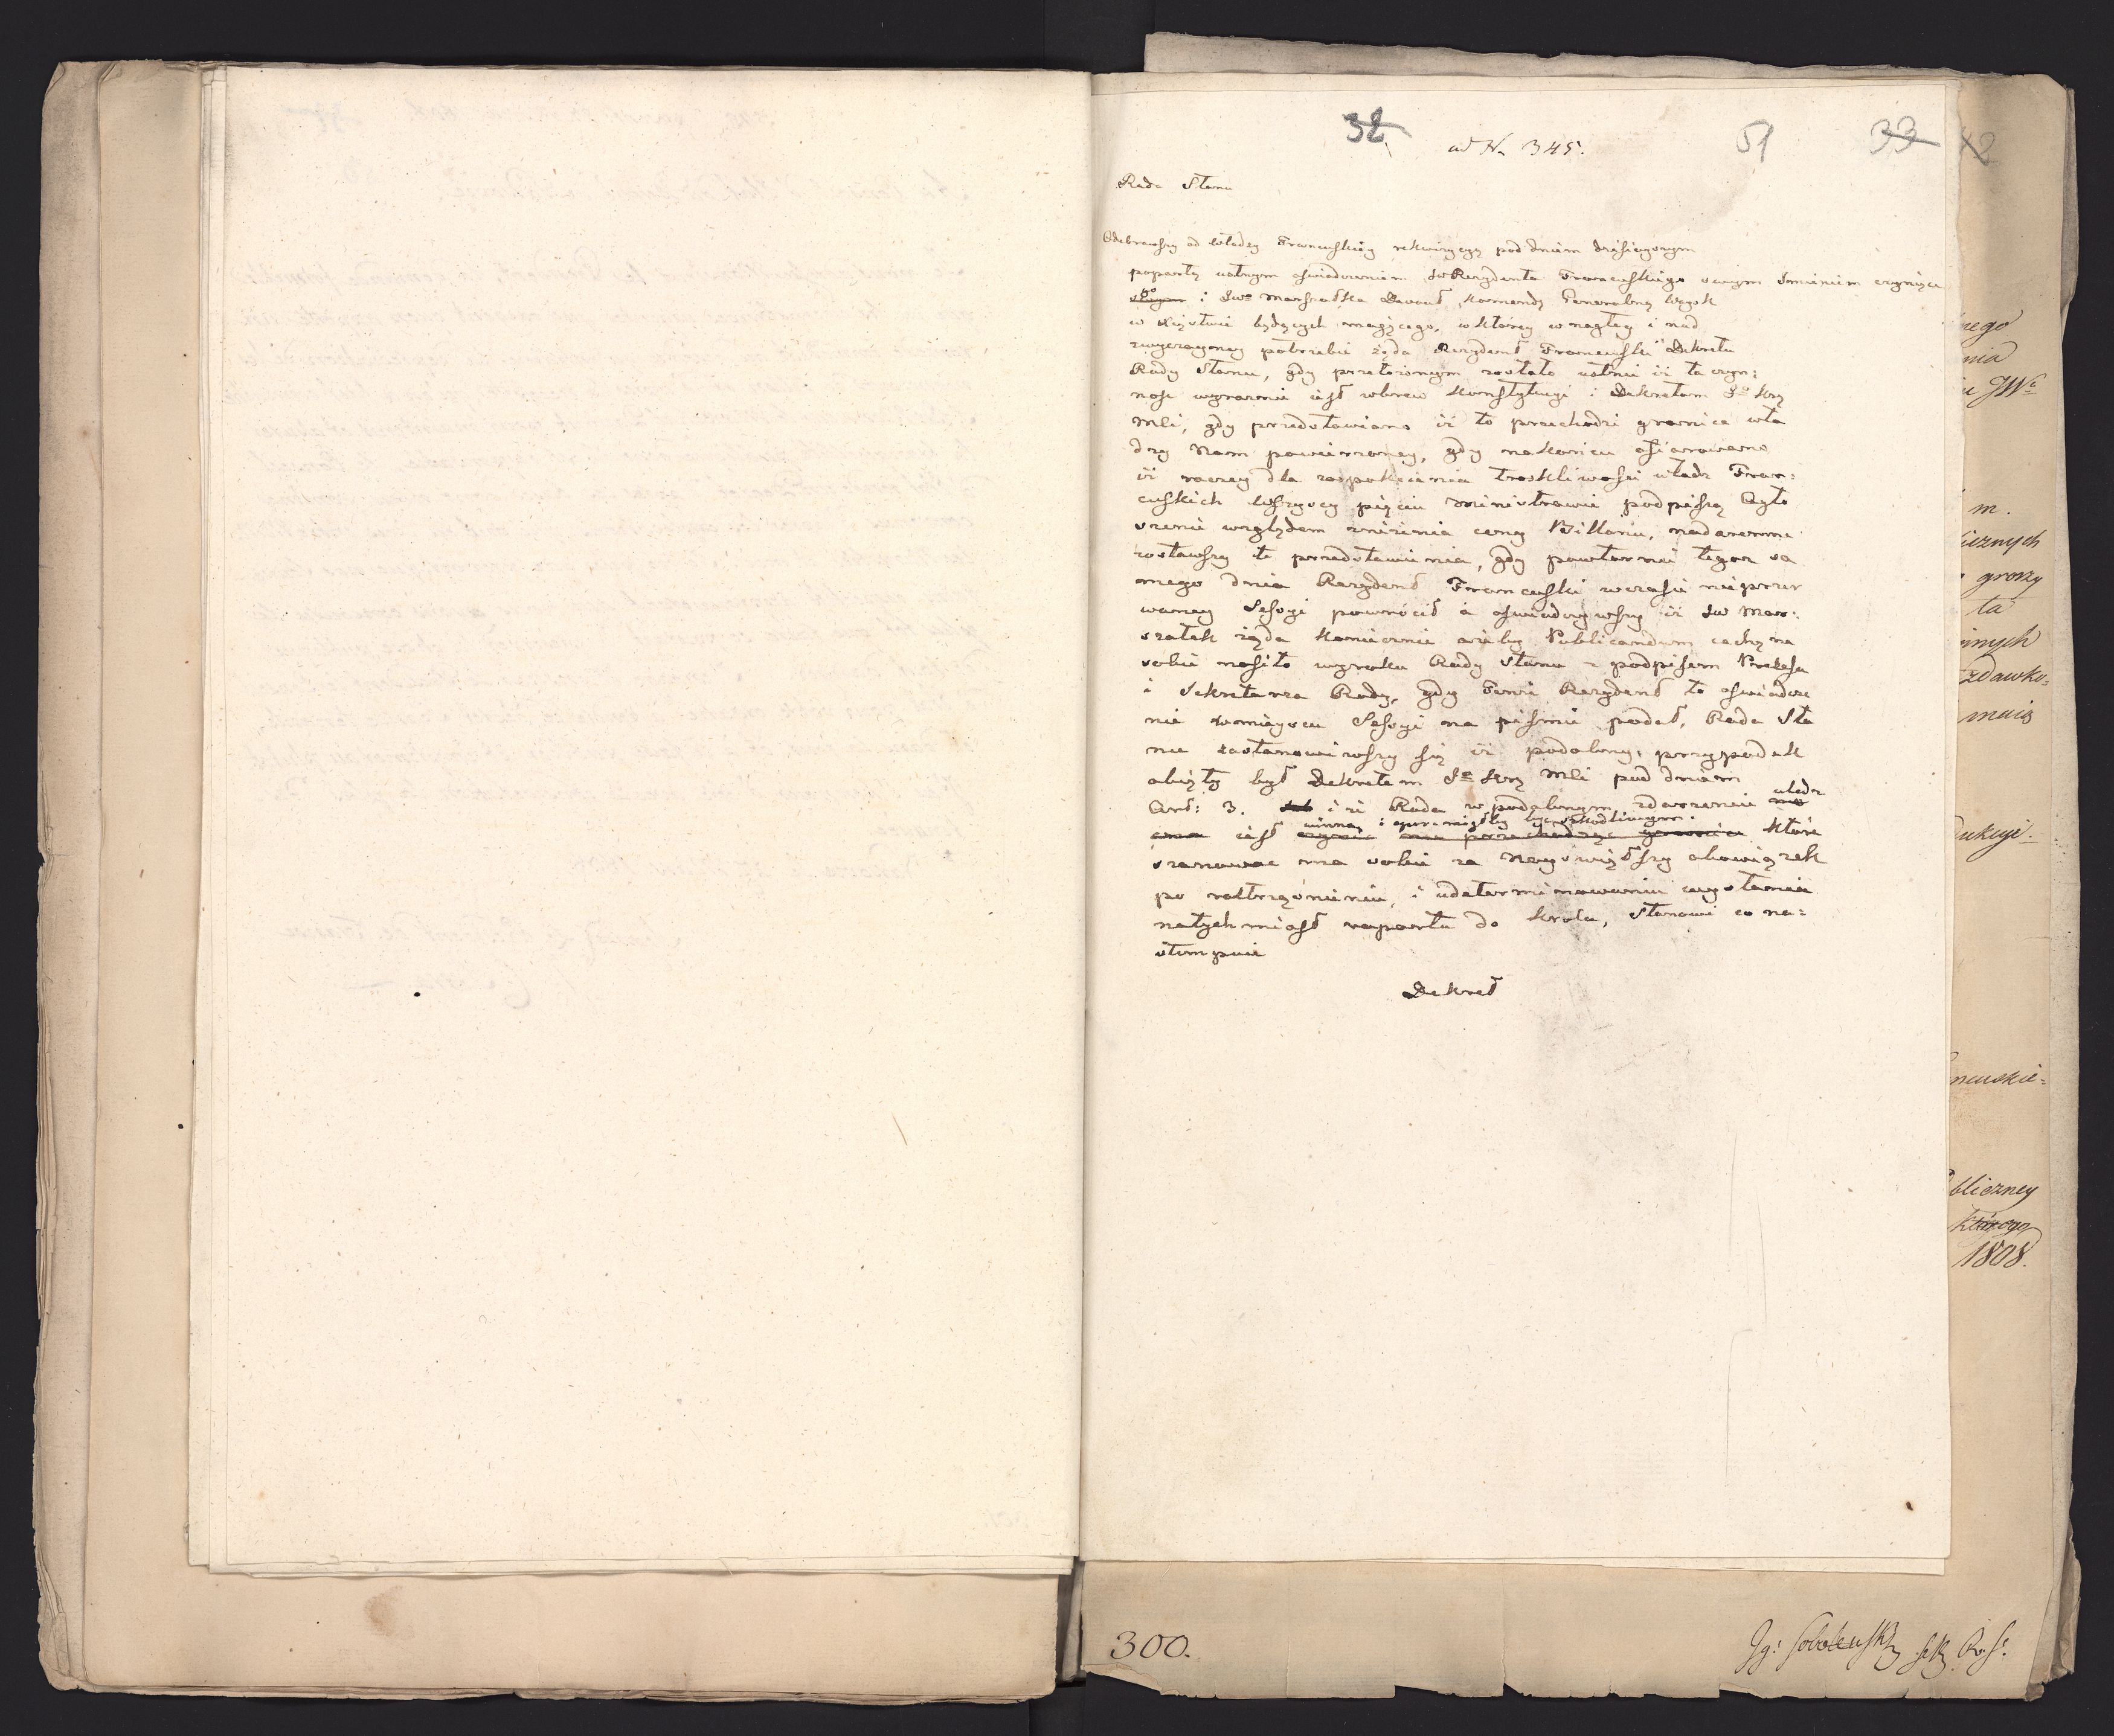 32
ad N. 345.
51
33
42
Rada Stanu
Odebrawszy od Władzy Francuskiey rekwizycyą pod dniem dzisieyszym
popartą ustnym oświadczeniem JW Rezydenta Francuskiego swym Jmieniem czyniącego
i JWo Marszałka Davout, Kommendę Generalną Woysk
w Xięstwie będących maiącego, w którey w nagłey i nad
zwyczayney potrzebie żąda Rezydent Francuski Dekretu
Rady Stanu, gdy przełożonym zostało ustnie iż ta czyn:
ność wyraźnie iest wbrew Konstytucyi i Dekretom Jo Krq
Mci, gdy przedstawiano iż to przechodzi granice wła
dzy Nam powierzoney, gdy nakoniec ofiarowano
iż raczey dla zaspokoienia troskliwości władz Fran:
cuskich wszyscy pięciu Ministrowie podpiszą Ogło
szenie względem zniżenia ceny Billonu, nadaremne
zostawszy te przedstawienia, gdy powtornie tegoż sa
mego dnia Rezydent Francuski w czasie nieprzer
waney Sessyi powrócił i oświadczywszy iż JW Mar:
szałek żąda koniecznie ażeby Publicandum cechę na
sobie nosiło wyroku Rady Stanu z podpisem Prezesa
i Sekretarza Rady, gdy Tenże Rezydent to oświadcze
nie w mieyscu Sessyi na piśmie podał, Rada Sta
nu zastanowiwszy się iż podobny przypadek
obięty był Dekretem Jo Krq Mci pod dniem
Art: 3. i iż Rada w podobnym zdarzeniu władz
winna i opor mógłby być szkodliwym.
iest czynić nie przechodząc granice które
szanować ma sobie za Nayświętszy obowiązek
po roztrząśnieniu, i udeterminowaniu wysłania
natychmiast raportu do Krola, stanowi co na=
stempuie
Dekret
nego
nia
JWo
m.
icznych
groszy
ta
innych
zdawko=
maią
dukuje.
ncuskie=
bliczney
którego
1808.
300.
Jg: Sobolewski Sek. R. S.